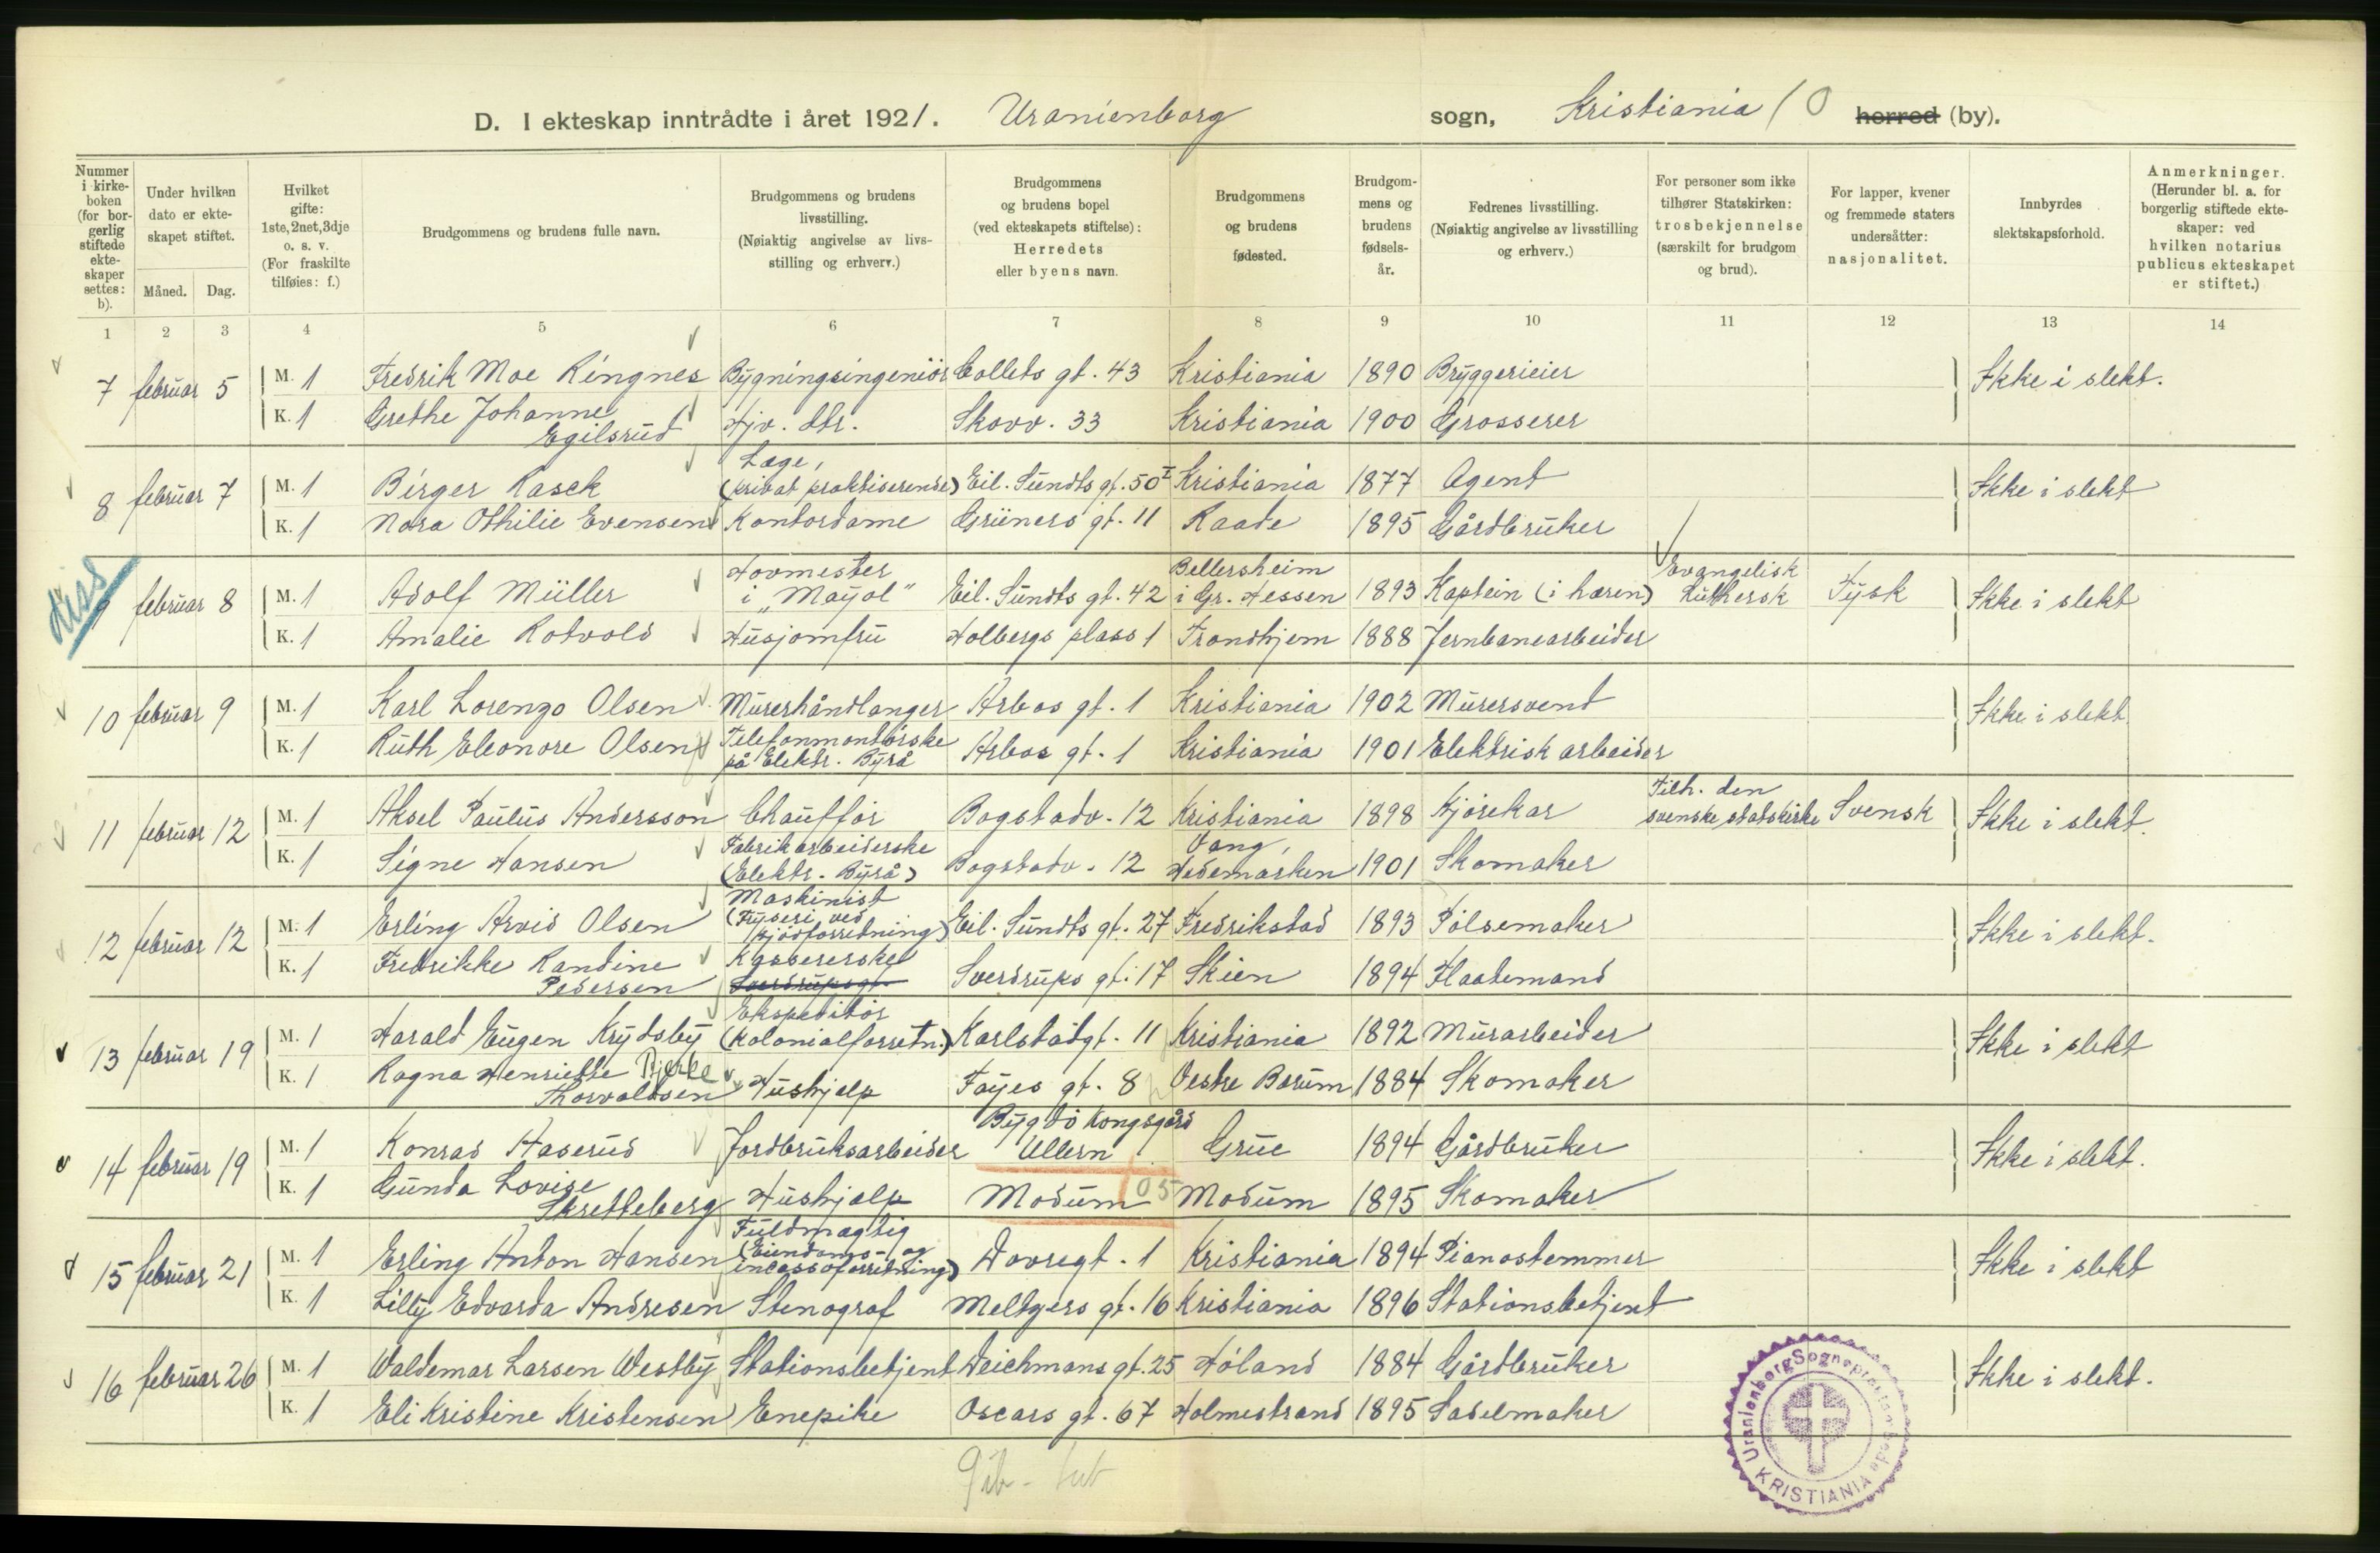 D. I ekteskap inntrådte i året 1921. Uranienborg sogn, Kristiania / 0 herred (by).
Nummer i kirke-boken (for bor-gerlig stiftede ekte-skaper settes: b).
Under hvilken dato er ekte-skapet stiftet.
Måned. Dag.
Hvilket gifte: 1ste, 2net, 3dje o. s. v. (For fraskilte tilføies: f.)
Brudgommens og brudens fulle navn.
Brudgommens og brudens livsstilling. (Nøiaktig angivelse av livs-stilling og erhverv.)
Brudgommens og brudens bopel (ved ekteskapets stiftelse): Herredets eller byens navn.
Brudgommens og brudens fødested.
Brudgom-mens og brudens fødsels-år.
Fedrenes livsstilling. (Nøiaktig angivelse av livsstilling og erhverv.)
For personer som ikke tilhører Statskirken: trosbekjennelse (særskilt for brudgom og brud).
For lapper, kvener og fremmede staters undersåtter: nasjonalitet.
Innbyrdes slektskapsforhold.
Anmerkninger. (Herunder bl. a. for borgerlig stiftede ekte-skaper: ved hvilken notarius publicus ekteskapet er stiftet.)
1 2 3 4 5 6 7 8 9 10 11 12 13 14
7 februar 5 M. 1 Fredrik Moe Ringnes Bygningsingeniör Collets gt. 43 Kristiania 1890 Bryggerieier Ikke i slekt.
K. 1 Grethe Johanne Egilsrud Hjv. dtr. Skovv. 33 Kristiania 1900 Grosserer
8 februar 7 M. 1 Birger Rasch Læge, (privat praktiserende) Eil. Sundts gt. 50 I Kristiania 1877 Agent Ikke i slekt
K. 1 Nora Othilie Evensen Kontordame Grüners gt. 11 Raade 1895 Gårdbruker
9 februar 8 M. 1 Adolf Müller Hovmester i „Mayol" Eil. Sundts gt. 42 Bellersheim i Gr. Hessen 1893 Kaptein (i hæren) Evangelisk Luthersk Tysk Ikke i slekt
K. 1 Amalie Rotvold Husjomfru Holbergs plass 1 Trondhjem 1888 Jernbanearbeider
10 februar 9 M. 1 Karl Lorenzo Olsen Murerhåndlanger Arbos gt. 1 Kristiania 1902 Murersvend Ikke i slekt
K. 1 Ruth Eleonore Olsen Telefonmontörske på Elektr. Byrå Arbos gt. 1 Kristiania 1901 Elektrisk arbeider
11 februar 12 M. 1 Aksel Paulus Andersson Chauffør Bogstadv. 12 Kristiania 1898 Kjørekar Tilh. den svenske statskirke Svensk Ikke i slekt.
K. 1 Signe Hansen Fabrikarbeiderske (Elektr. Byrå) Bogstadv. 12 Vang, Hedemarken 1901 Skomaker
12 februar 12 M. 1 Erling Arvid Olsen Maskinist (Fryseri ved kjödforretning) Eil. Sundts gt. 27 Fredrikstad 1893 Pölsemaker Ikke i slekt.
K. 1 Fredrikke Randine Pedersen Kassererske Sverdrups gt. Sverdrups gt. 17 Skien 1894 Flaatemand
13 februar 19 M. 1 Harald Eugen Krydsby Ekspeditör (Kolonialforretn.) Karlstadgt. 11 Kristiania 1892 Murarbeider Ikke i slekt
K. 1 Ragna Henriette Bjerke Thorvaldsen Hushjelp Fayes gt. 8 Vestre Bærum 1884 Skomaker
14 februar 19 M. 1 Konrad Haserud Jordbruksarbeider Bygdö Kongsgård Ullern Grue 1894 Gårdbruker Ikke i slekt.
K. 1 Gunda Lovise Skretteberg Hushjelp Modum 05 Modum 1895 Skomaker
15 februar 21 M. 1 Erling Anton Hansen Fuldmægtig (Eiendoms- og incassoforretning) Dovregt. 1 Kristiania 1894 Pianostemmer Ikke i slekt
K. 1 Lilly Edvarda Andresen Stenograf Meltzers gt. 16 Kristiania 1896 Stationsbetjent
16 februar 26 M. 1 Waldemar Larsen Westby Stationsbetjent Deichmans gt. 25 Höland 1884 Gårdbruker Ikke i slekt.
K. 1 Eli Kristine Kristensen Enepike Oscars gt. 67 Holmestrand 1895 Sadelmaker
Uranienborg Sogneprestembede KRISTIANIA